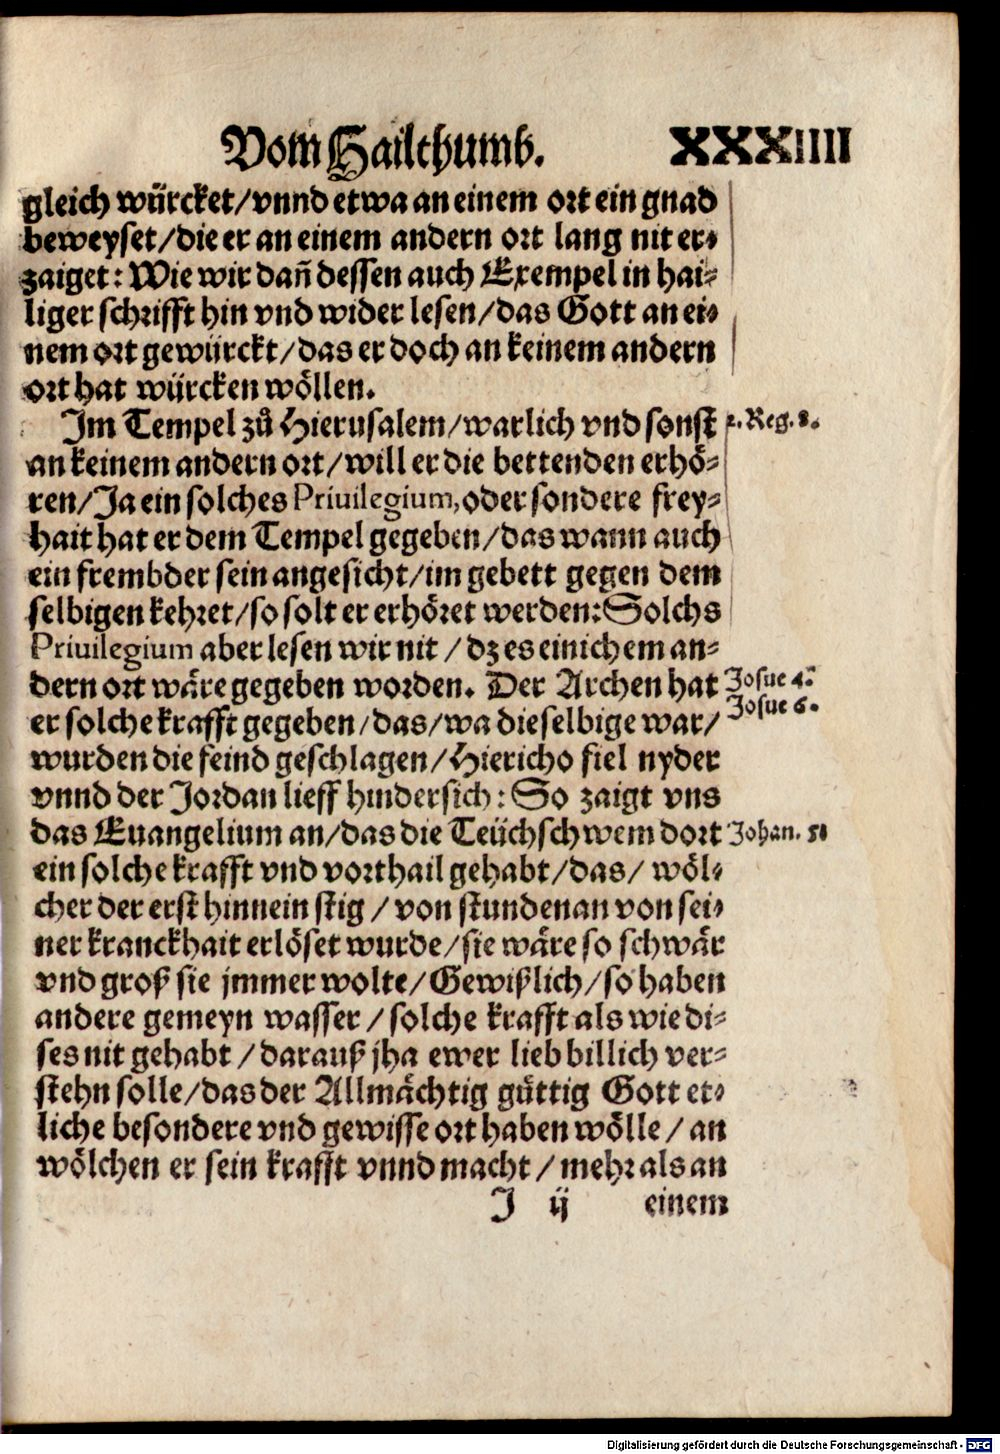 Vom Hailthumb. XXXIIII
gleich würcket/vnnd etwa an einem ort ein gnad
beweyset/die er an einem andern ort lang nit er⸗
zaiget: Wie wir dañ dessen auch Exempel in hai⸗
liger schrifft hin vnd wider lesen/das Gott an ei⸗
nem ort gewürckt/das er doch an keinem andern
ort hat würcken wöllen.
Im Tempel zů Hierusalem/warlich vnd sonst
Reg. 8.
an keinem andern ort/will er die bettenden erhö⸗
ren/Ja ein solches Priuilegium, oder sondere frey⸗
hait hat er dem Tempel gegeben/das wann auch
ein frembder sein angesicht/im gebett gegen dem
selbigen kehret/so solt er erhöret werden: Solchs
Priuilegium aber lesen wir nit / dz es einichem an⸗
dern ort wäre gegeben worden. Der Archen hat
Josue 4.
Josue 6.
er solche krafft gegeben/das/wa dieselbige war/
wurden die feind geschlagen/Hiericho fiel nyder
vnnd der Jordan lieff hindersich: So zaigt vns
das Euangelium an/das die Teüchschwem dort
Johan. 5.
ein solche krafft vnd vorthail gehabt/das/ wöl⸗
cher der erst hinnein stig / von stundenan von sei⸗
ner kranckhait erlöset wurde/sie wäre so schwär
vnd groß sie jmmer wolte/Gewißlich/so haben
andere gemeyn wasser / solche krafft als wie di⸗
ses nit gehabt / darauß jha ewer lieb billich ver⸗
stehn solle/das der Allmächtig güttig Gott et⸗
liche besondere vnd gewisse ort haben wölle / an
wölchen er sein krafft vnnd macht / mehr als an
J ij einem
Digitalisierung gefördert durch die Deutsche Forschungsgemeinschaft - DFG